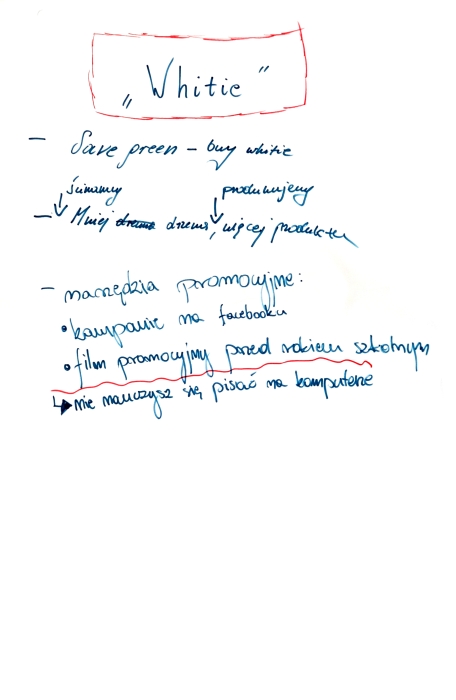 „Whitie”
- Save green - buy whitie
ścinamy produkujemy
- Mniej drzewa drzewa, więcej produktu
- narzędzia promocyjne:
• kampanie na facebooku
• film promocyjny przed rokiem szkolnym
nie nauczysz się pisać na komputerze